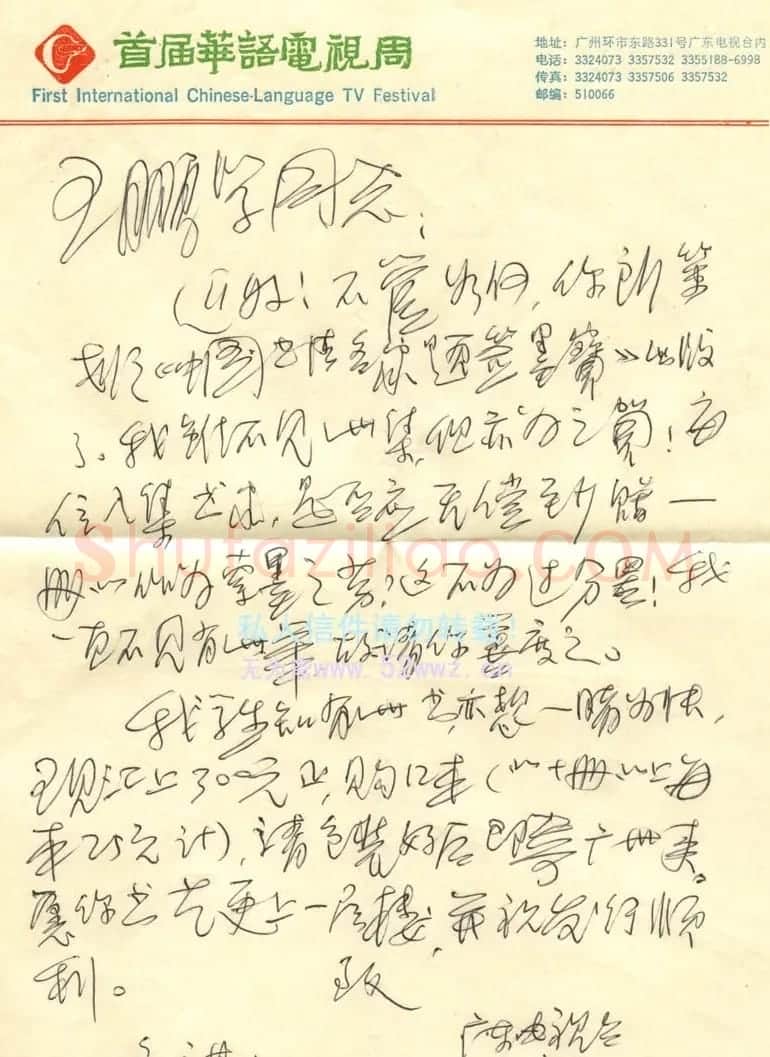 首届華語電視周
First International Chinese-Language TV Festival
地址：广州环市东路331号广东电视台内
电话：3324073 3357532 3355188-6998
传真：3324073 3357506 3357532
邮编：510066
王鹏学同志：
近好！不管如何，你所策
划《中国书法名家题签墨宝》出版
了。我虽不见此集，但亦为之贺！每
位入集书家，是否应无偿至少赠一
册以作为索墨之劳？这不为过分罢！我
一直不见有此举，故请你量度之。
我学生知有此书，亦想一睹为快，
现汇上300元正，购12本（以十册以上每
本25元计），请包装好后即寄广州来。
愿你书艺更上一层楼，并祝发行顺
利。 致
广东电视台
Shufaziliao.COM
私人信件请勿转载！
www.52wwz.cn